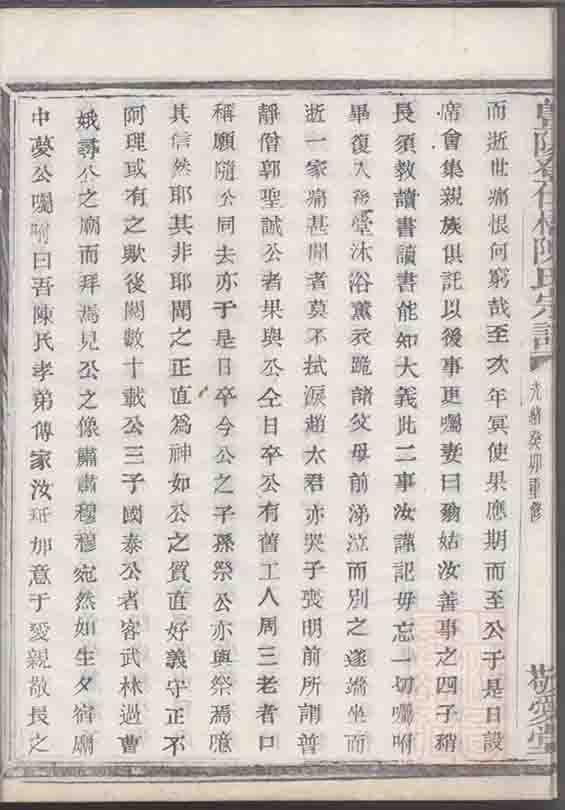 而逝世痛恨何窮哉至次年冥使果應期而至公于是日設
席會集親族俱託以後事更囑妻曰翁姑汝善事之四子稍
長須教讀書讀書能知大義此二事汝謹記毋忘一切囑咐
畢復入後堂沐浴薰衣跪諸父母前涕泣而別之遂端坐而
逝一家痛甚聞者莫不拭淚趙太君亦哭子喪明前所謂普
靜僧郭聖誠公者果與公仝日卒公有舊工人周三老者口
稱願隨公同去亦于是日卒今公之子孫祭公亦與祭焉噫
其信然耶其非耶聞之正直為神如公之質直好義守正不
阿理或有之歟後閱數十載公三子國泰公者客武林過曹
娥尋公之廟而拜焉見公之像肅肅穆穆宛然如生夕宿廟
中夢公囑咐曰吾陳氏孝弟傳家汝祇加意于愛親敬長之
陳氏宗譜
光緒癸卯重修
敬愛堂